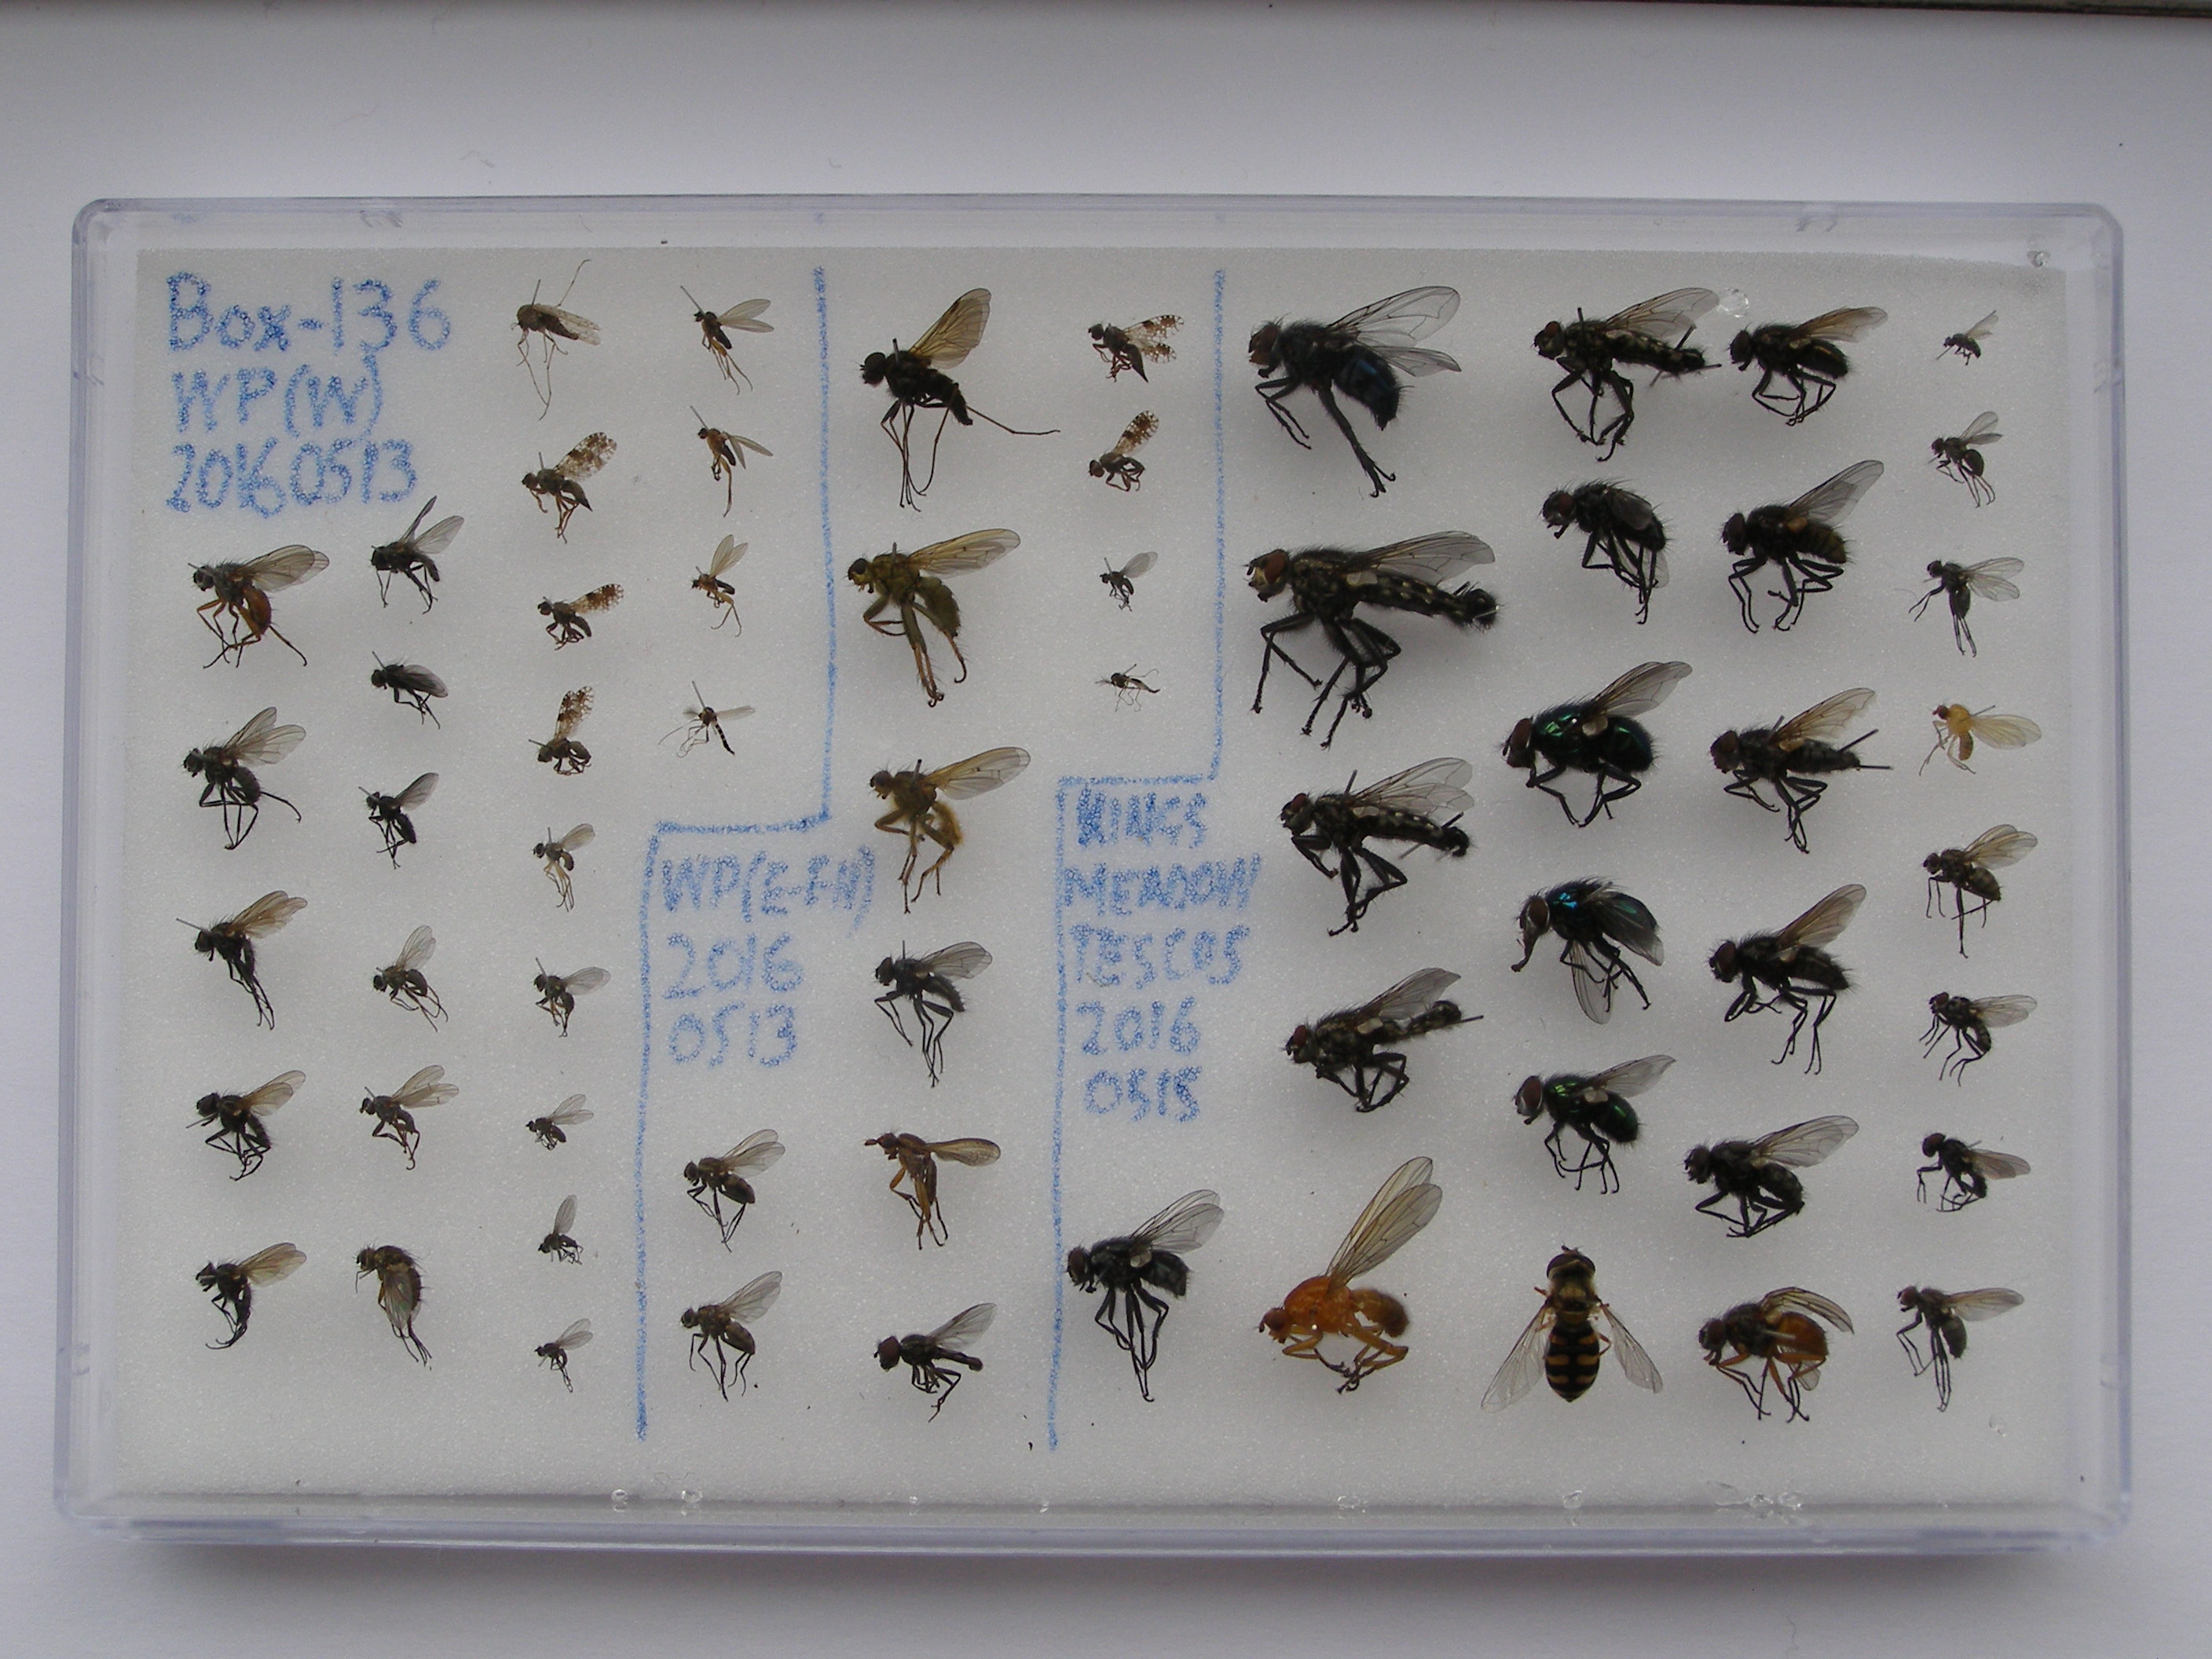 Box-136
WP(W)
20160513
WP(E-FN)
2016
0513
KINGS
MEADOW
TESCOS
2016
0515